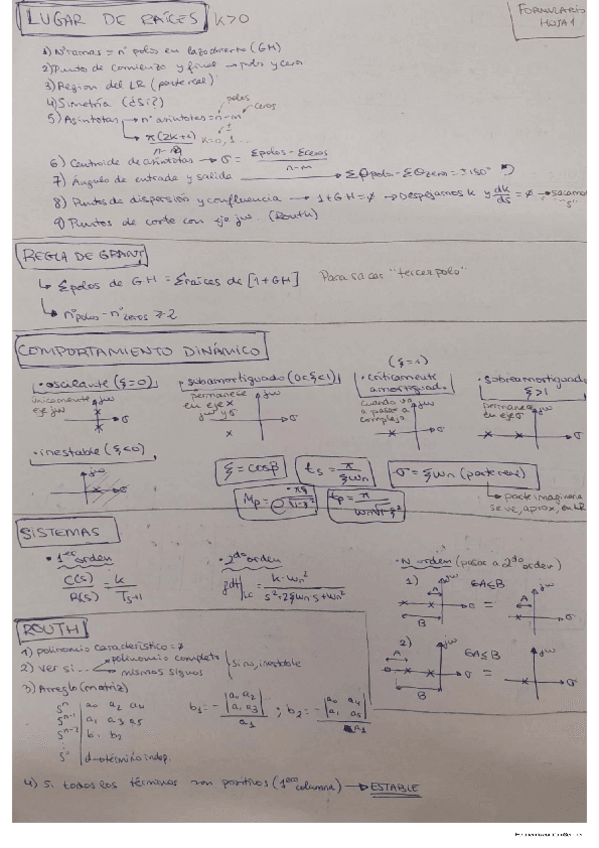 LUGAR DE RAÍCES K>0
FORMULARIO
HOJA 1
1) Nº ramas = nº polos en lazo abierto (GH)
2) Punto de comienzo y final → polos y ceros
3) Region del LR (parte real)
4) Simetría (¿Si?)
polos
ceros
5) Asíntotas → nº asíntotas = n-m
→ π(2K+1)/n-m K=0, 1...
6) Centroide de asíntotas → σ = Σpolos - Σceros / n-m
7) Ángulo de entrada y salida → Σθpolo - Σθzero = ±180º
8) Puntos de dispersión y confluencia → 1+GH=0 → Despejamos K y dK/ds = 0 → sacamos "s"
9) Puntos de corte con eje jω. (Routh)
REGLA DE GRANT
↳ Σpolos de GH = Σraíces de [1+GH] Para sacar "tercer polo"
↳ nº polos - nº ceros ≥ 2
COMPORTAMIENTO DINÁMICO
(ξ=1)
· oscilante (ξ=0) · subamortiguado (0<ξ<1) · críticamente amortiguado · sobreamortiguado ξ>1
únicamente eje jω
permanece en eje x jω y σ
cuando va a pasar a complejo
permanece en eje σ
jω σ
· inestable (ξ<0)
ξ = cosβ
ts = π/ξωn
σ = ξωn (parte real)
Mp = e^-πξ/√1-ξ²
tp = π/ωn√1-ξ²
↳ parte imaginaria se ve, aprox, en LR
SISTEMAS
· 1er orden · 2do orden · N orden (pasar a 2do orden)
C(s)/R(s) = K/Ts+1
fdt|LC = K·ωn²/s²+2ξωn s+ωn²
1) 6A≤B
A B jω σ =
2) 6A≤B
A B jω σ =
ROUTH
1) polinomio característico = 0
2) Ver si... polinomio completo
mismos signos
si no, inestable
3) Arreglo (matriz)
sⁿ | a0 a2 a4
sⁿ⁻¹ | a1 a3 a5
sⁿ⁻² | b1 b2
s⁰ | d → término indep.
b1 = - |a0 a2| |a1 a3| / a1 ; b2 = - |a0 a4| |a1 a5| / a1
4) Si todos los términos son positivos (1era columna) → ESTABLE